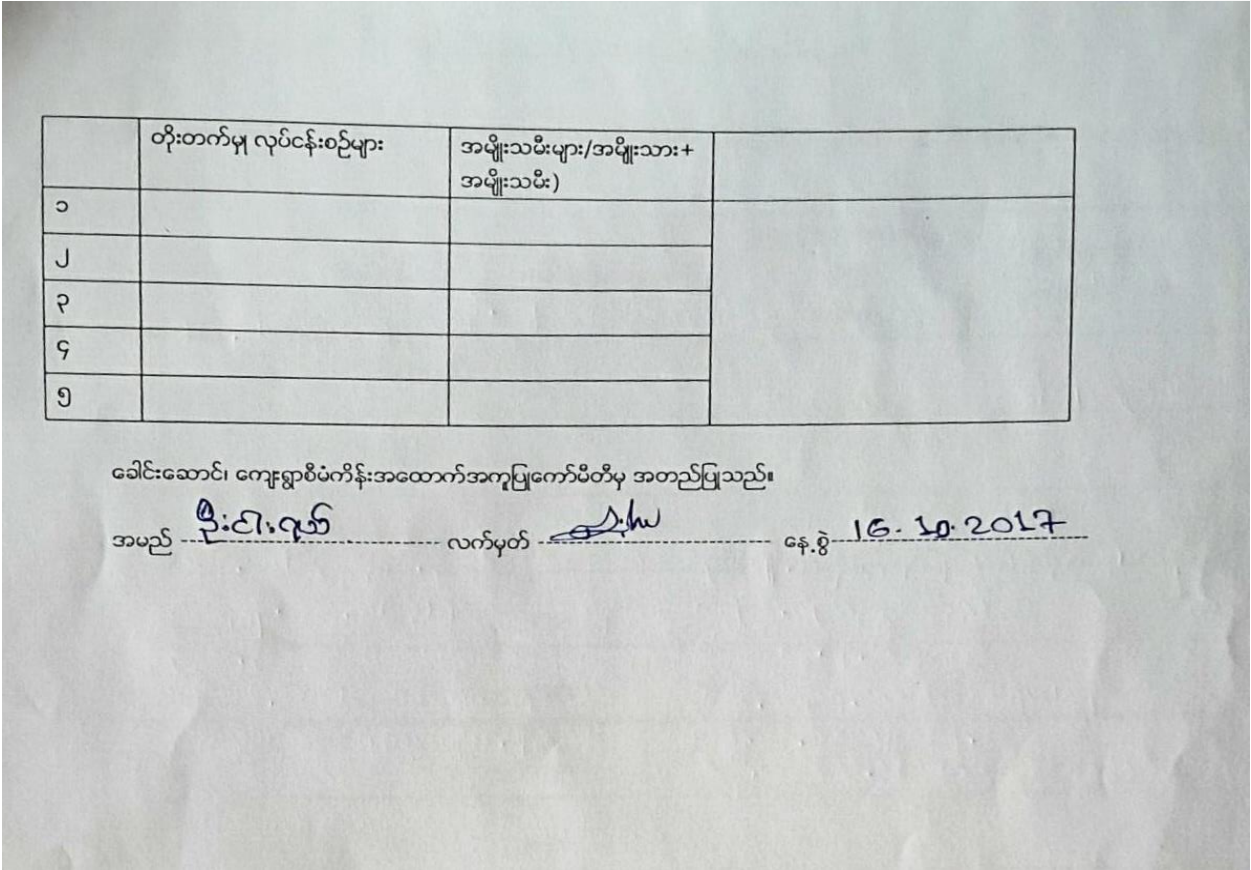 တိုးတက်မှု လုပ်ငန်းစဉ်များ
အမျိုးသမီးများ/အမျိုးသား+
အမျိုးသမီး)
၁
၂
၃
၄
၅
ခေါင်းဆောင်၊ ကျေးရွာစီမံကိန်းအထောက်အကူပြုကော်မီတီမှ အတည်ပြုသည်။
အမည် ဦးငါးရယ် လက်မှတ် နေ့စွဲ 16.10.2017